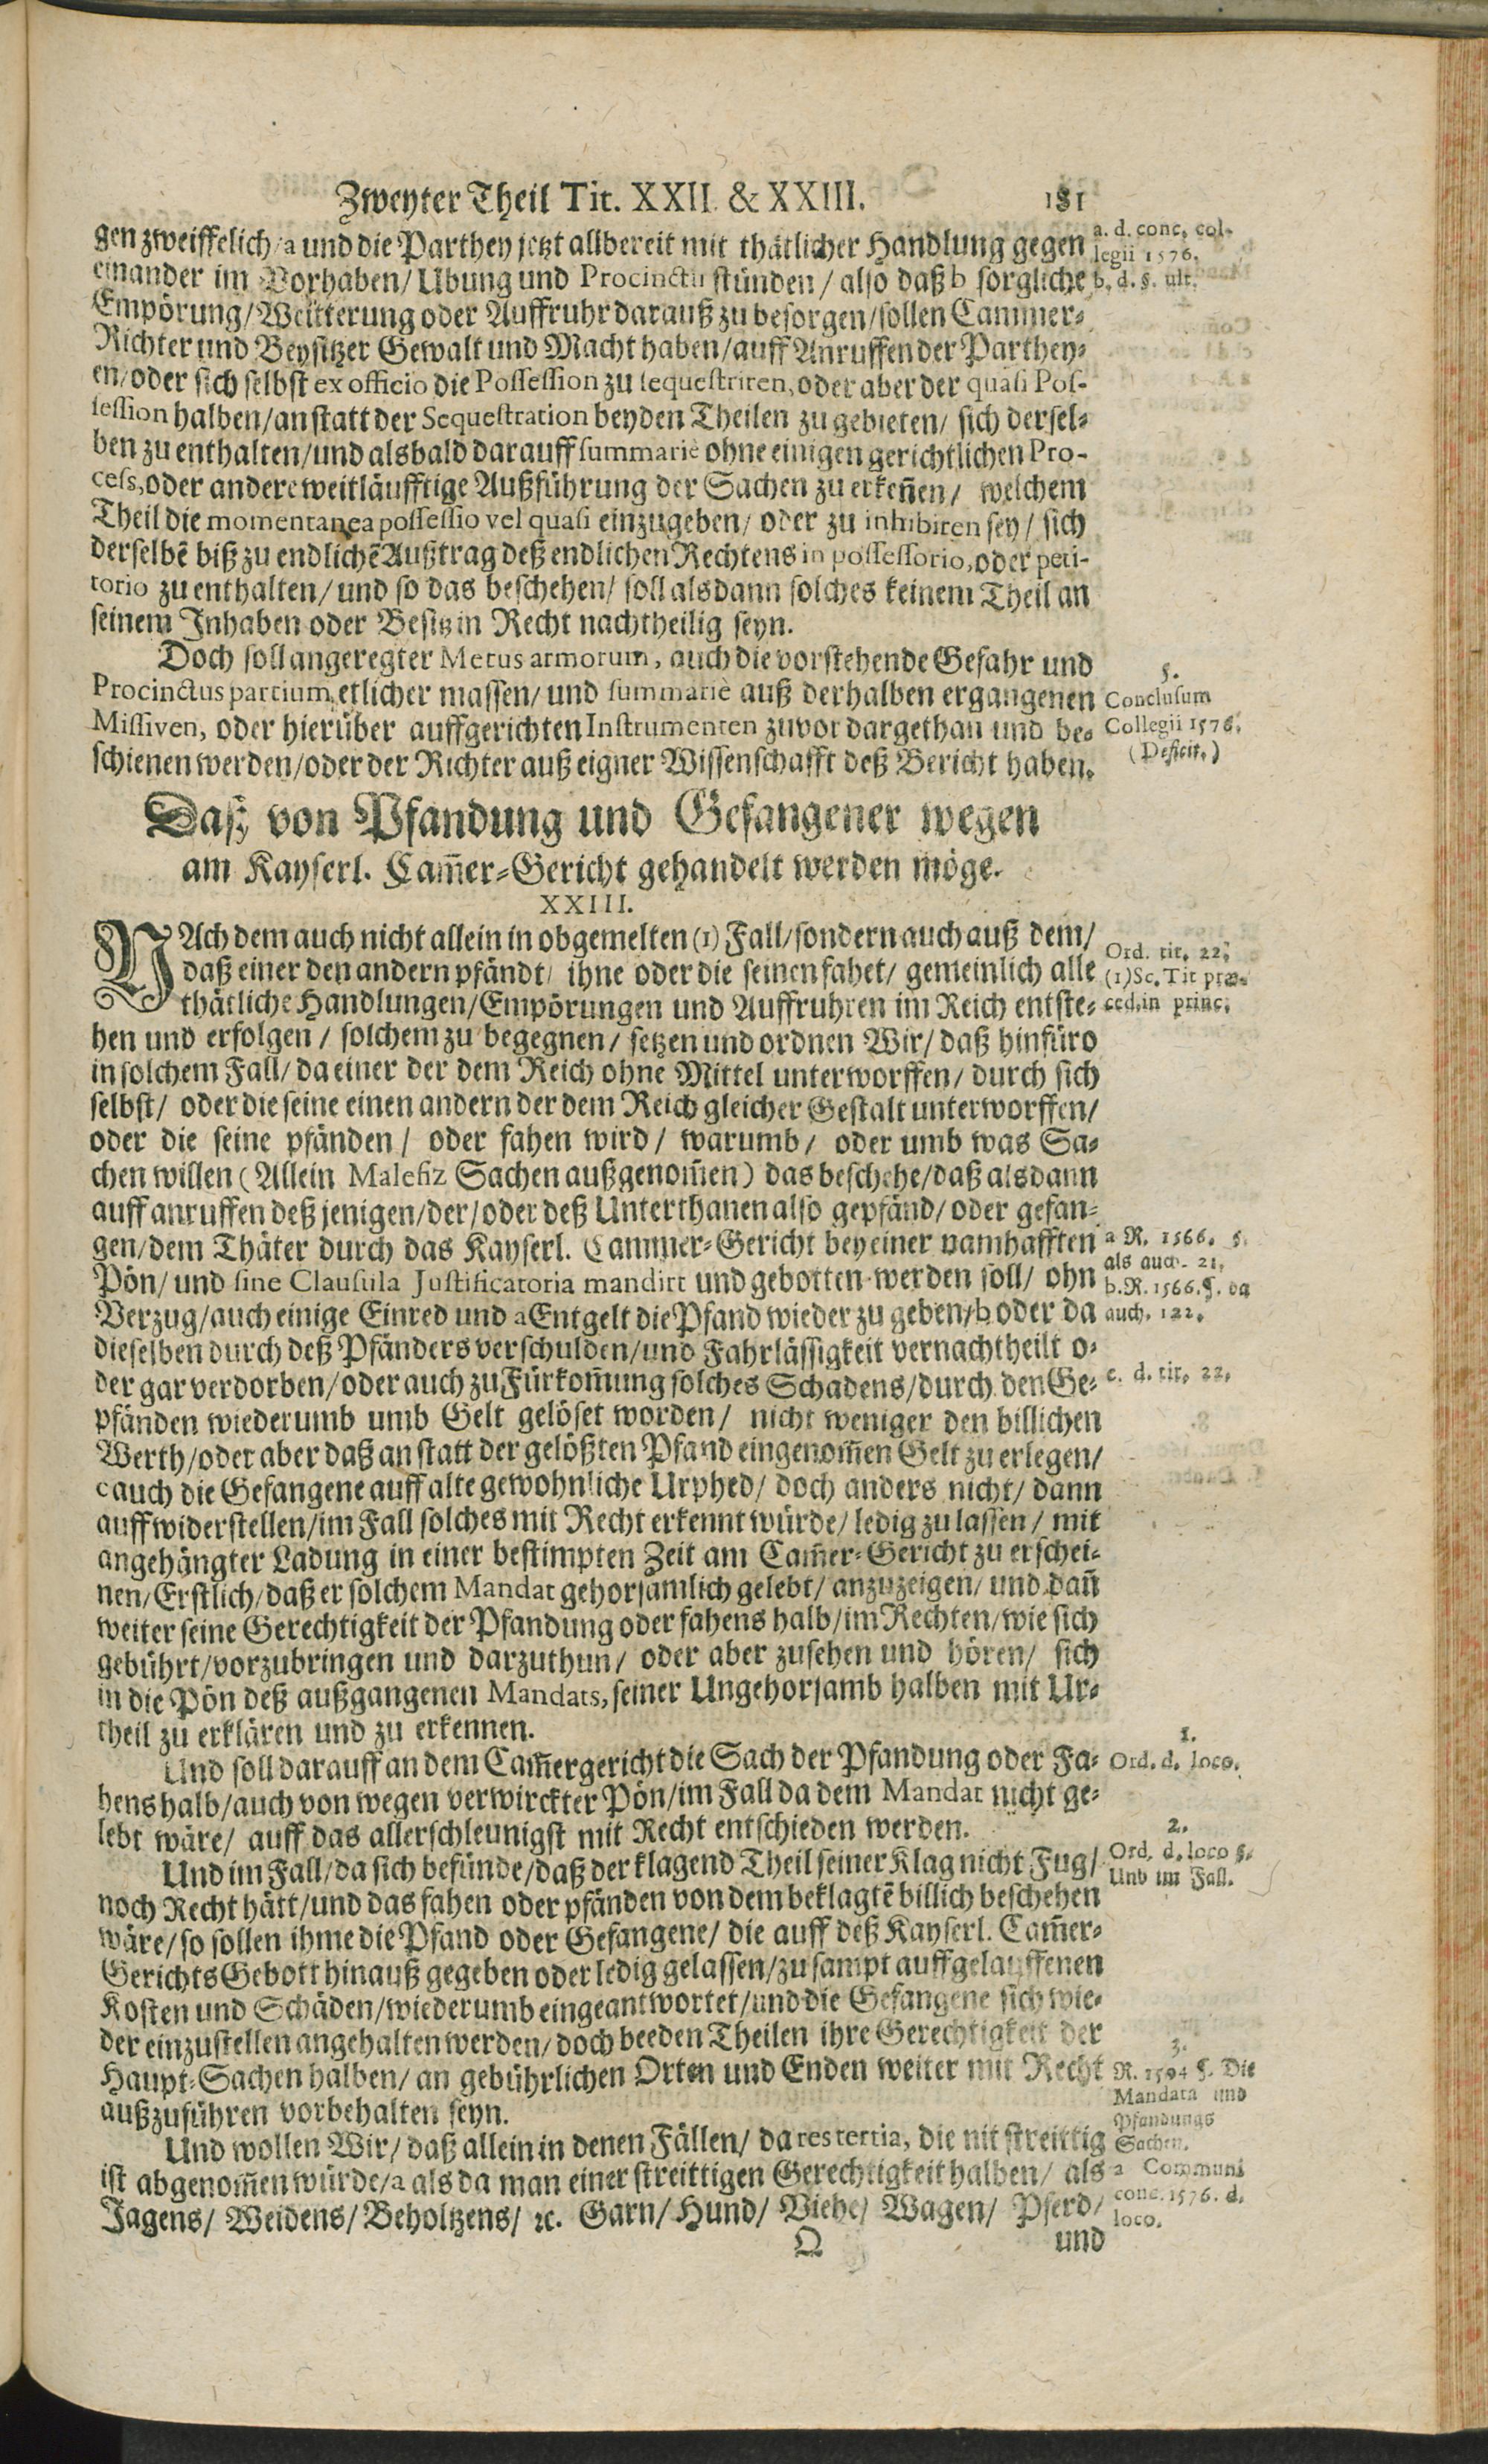 Zweyter Theil Tit. XXII. & XXIII. 181
gen zweiffelich/a und die Parthey jetzt allbereit mit thätlicher Handlung gegen
einander im Vorhaben/ Ubung und Procinctu stünden / also daß b sorgliche
Empörung/Weitterung oder Auffruhr darauß zu besorgen/sollen Cammer-
Richter und Beysitzer Gewalt und Macht haben/auff Anruffen der Parthey-
en/oder sich selbst ex officio die Possession zu sequestriren, oder aber der quasi Pos-
session halben/anstatt der Sequestration beyden Theilen zu gebieten/ sich dersel-
ben zu enthalten/und alsbald darauff summariè ohne einigen gerichtlichen Pro-
cess, oder andere weitläufftige Außführung der Sachen zu erkeñen/ welchem
Theil die momentanea possessio vel quasi einzugeben/ oder zu inhibiren sey/ sich
derselbẽ biß zu endlichẽ Außtrag deß endlichen Rechtens in possessorio, oder peti-
torio zu enthalten/ und so das beschehen/ soll alsdann solches keinem Theil an
seinem Inhaben oder Besitz in Recht nachtheilig seyn.
Doch soll angeregter Metus armorum, auch die vorstehende Gefahr und
Procinctus partium, etlicher massen/ und summariè auß derhalben ergangenen
Missiven, oder hierüber auffgerichten Instrumenten zuvor dargethan und be-
schienen werden/oder der Richter auß eigner Wissenschafft deß Bericht haben.
a. d. conc. col-
legii 1576.
b. d. §. ult.
5.
Conclusum
Collegii 1576.
(Deficit.)
Daß von Pfandung und Gefangener wegen
am Kayserl. Cam̃er-Gericht gehandelt werden möge.
XXIII.
NAch dem auch nicht allein in obgemelten (1) Fall/sondern auch auß dem/
daß einer den andern pfändt/ ihne oder die seinen fahet/ gemeinlich alle
thätliche Handlungen/Empörungen und Auffruhren im Reich entste-
hen und erfolgen / solchem zu begegnen/ setzen und ordnen Wir/ daß hinfüro
in solchem Fall/ da einer der dem Reich ohne Mittel unterworffen/ durch sich
selbst/ oder die seine einen andern der dem Reich gleicher Gestalt unterworffen/
oder die seine pfänden / oder fahen wird/ warumb/ oder umb was Sa-
chen willen (Allein Malefiz Sachen außgenom̃en) das beschehe/daß alsdann
auff anruffen deß jenigen/der/oder deß Unterthanen also gepfänd/ oder gefan-
gen/dem Thäter durch das Kayserl. Cammer-Gericht bey einer namhafften
Pön/ und sine Clausula Justificatoria mandirt und gebotten werden soll/ ohn
Verzug/auch einige Einred und a Entgelt die Pfand wieder zu geben/b oder da
dieselben durch deß Pfänders verschulden/und Fahrlässigkeit vernachtheilt o-
der gar verdorben/oder auch zu Fürkom̃ung solches Schadens/durch den Ge-
pfänden wiederumb umb Gelt gelöset worden/ nicht weniger den billichen
Werth/oder aber daß anstatt der gelößten Pfand eingenom̃en Gelt zu erlegen/
c auch die Gefangene auff alte gewohnliche Urphed/ doch anders nicht/ dann
auff widerstellen/im Fall solches mit Recht erkennt würde/ ledig zu lassen/ mit
angehängter Ladung in einer bestimpten Zeit am Cam̃er-Gericht zu erschei-
nen/Erstlich/daß er solchem Mandat gehorsamlich gelebt/ anzuzeigen/ und dañ
weiter seine Gerechtigkeit der Pfandung oder fahens halb/im Rechten/wie sich
gebührt/vorzubringen und darzuthun/ oder aber zusehen und hören/ sich
in die Pön deß außgangenen Mandats, seiner Ungehorsamb halben mit Ur-
theil zu erklären und zu erkennen.
Und soll darauff an dem Cam̃ergericht die Sach der Pfandung oder Fa-
hens halb/auch von wegen verwirckter Pön/im Fall da dem Mandat nicht ge-
lebt wäre/ auff das allerschleunigst mit Recht entschieden werden.
Und im Fall/da sich befünde/daß der klagend Theil seiner Klag nicht Fug/
noch Recht hätt/und das fahen oder pfänden von dem beklagtẽ billich beschehen
wäre/so sollen ihme die Pfand oder Gefangene/ die auff deß Kayserl. Cam̃er-
Gerichts Gebott hinauß gegeben oder ledig gelassen/zu sampt auffgelauffenen
Kosten und Schäden/wiederumb eingeantwortet/und die Gefangene sich wie-
der einzustellen angehalten werden/ doch beeden Theilen ihre Gerechtigkeit der
Haupt-Sachen halben/ an gebührlichen Orten und Enden weiter mit Recht
außzuführen vorbehalten seyn.
Und wollen Wir/ daß allein in denen Fällen/ da res tertia, die nit streittig
ist abgenom̃en würde/a als da man einer streittigen Gerechtigkeit halben/ als
Jagens/ Weidens/ Beholtzens/ ꝛc. Garn/ Hund/ Viehe/ Wagen/ Pferd/
Q und
Ord. tit. 22.
(1) Sc. Tit. præ-
ced. in princ.
a R. 1566. §.
als auch. 21.
b. R. 1566. §. da
auch. 122.
c. d. tit. 22.
1.
Ord. d. loco.
2.
Ord. d. loco §.
Und im Fall.
3.
R. 1594 §. Die
Mandata und
Pfandungs
Sachen.
a Communi
conc. 1576. d.
loco.